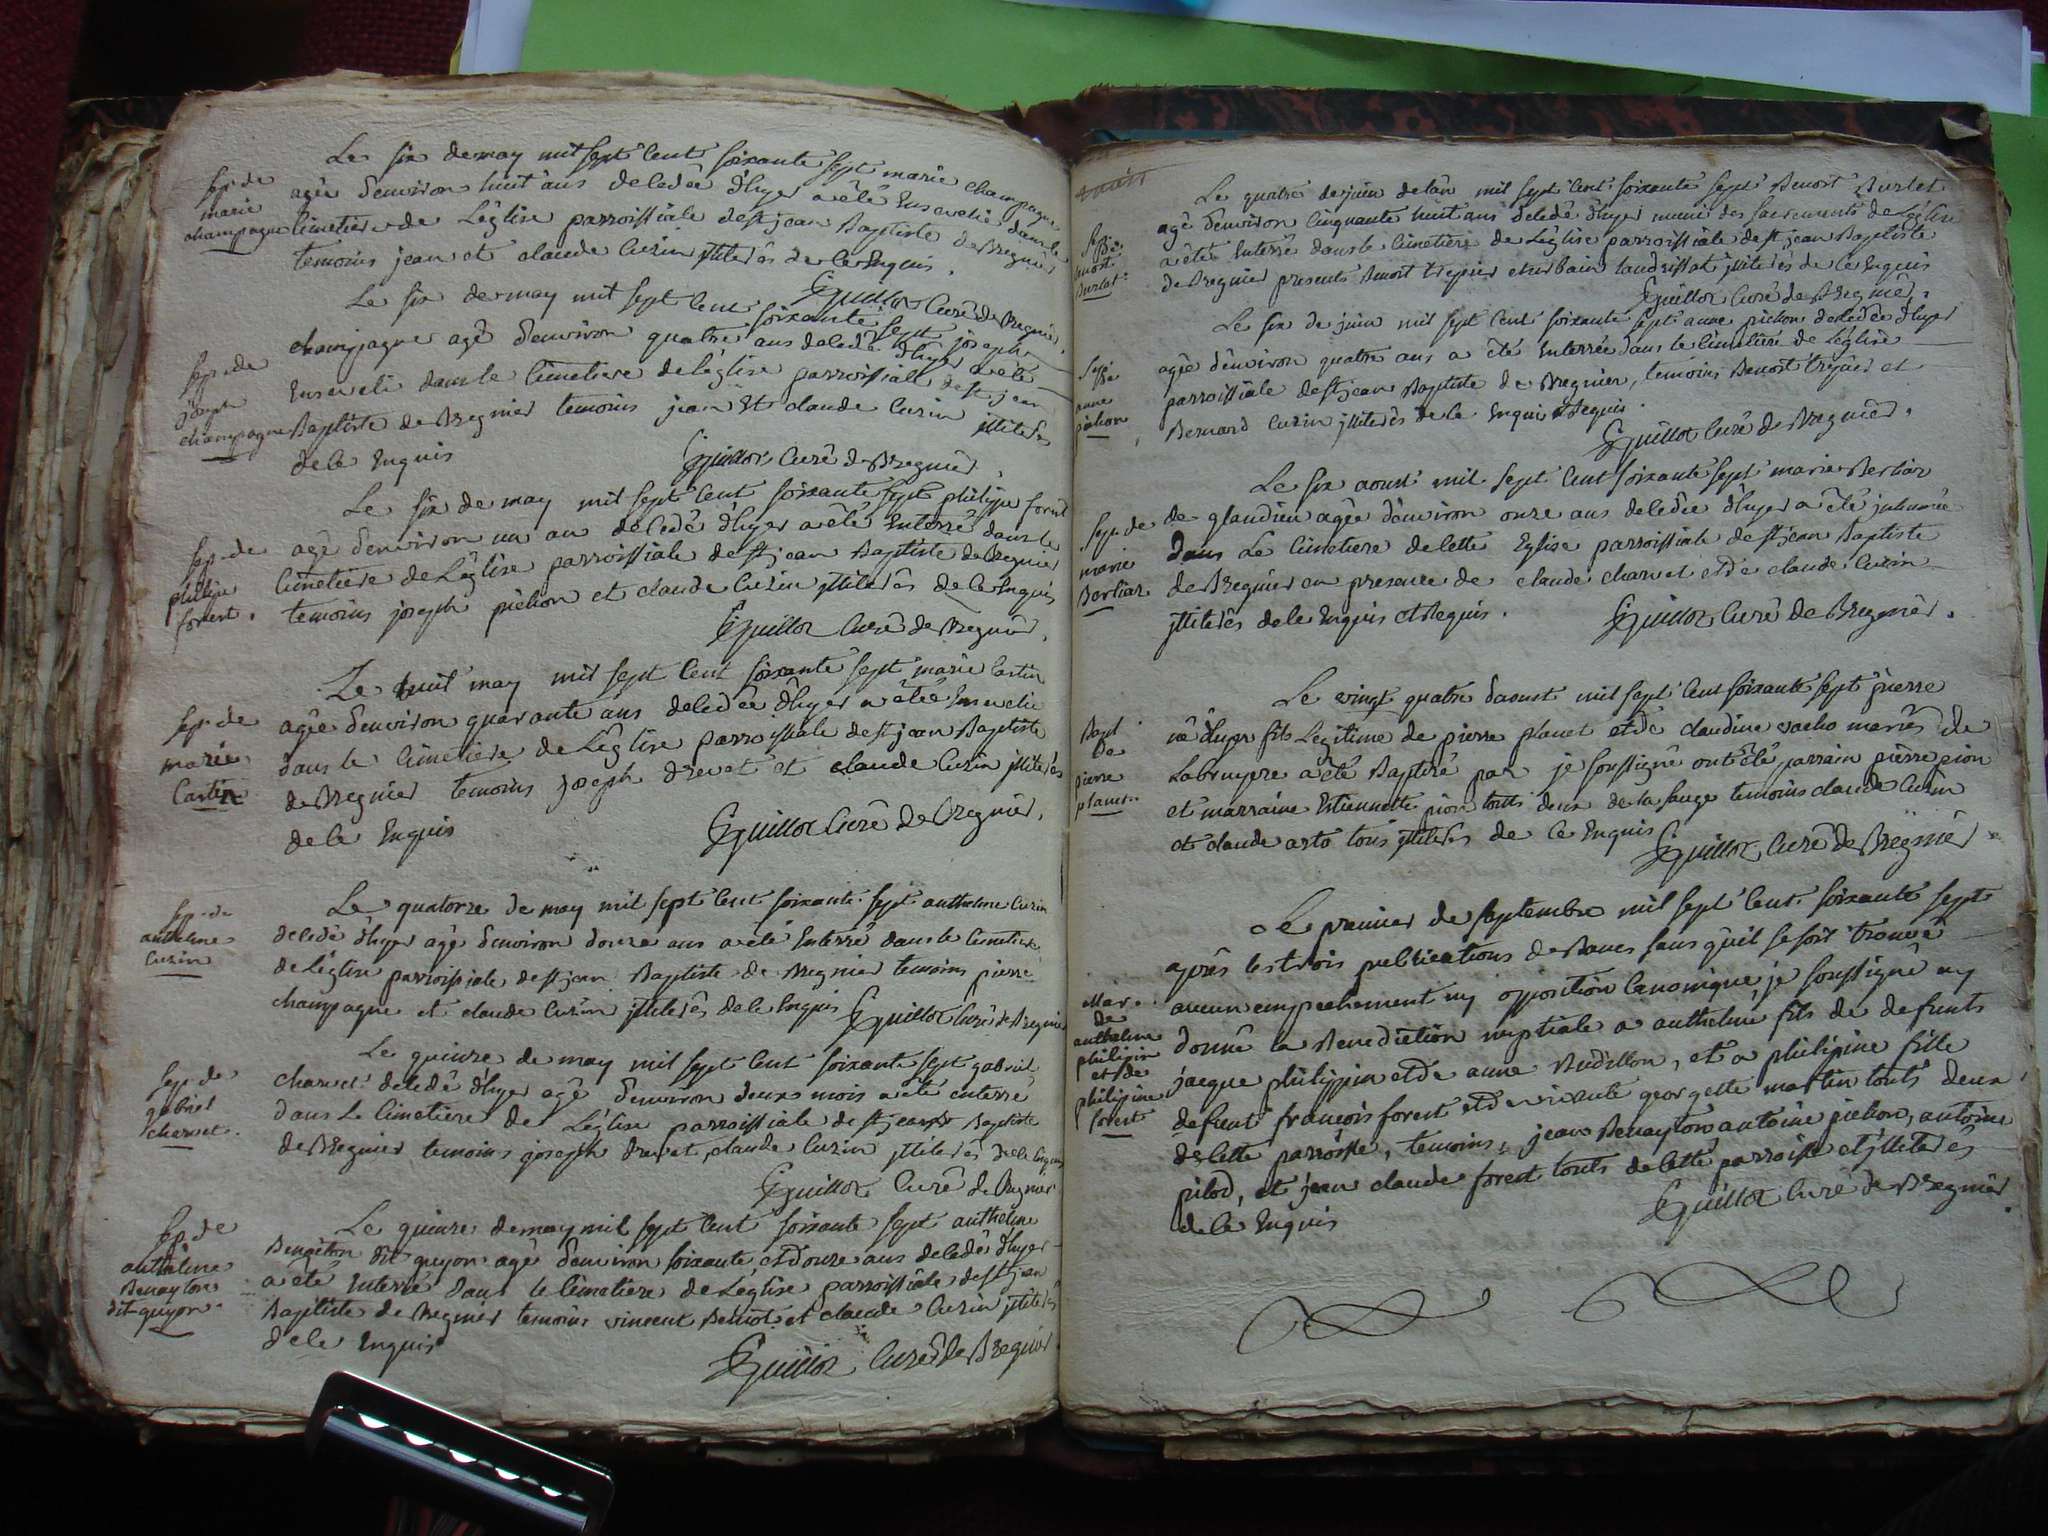 Le six de may mil sept cent soixante sept marie champagne
sep. de
marie
champagne
agée d'environ huit ans decedée d'hyer a êté Ensevelie dans le
cimetiere de L'église parroissiale de st jean Baptiste de Bregnier
temoins jean et claude Curin jlliterés de ce Enquis.
Guillot Curé de Bregnier.
Le six de may mil sept cent soixante sept joseph
sep. de
joseph
champagne
champagne agé d'environ quatre ans decedé d'hyer a êté
Enseveli dans le cimetiere de l'église parroissiale de st jean
Baptiste de Bregnier temoins jean Et claude Curin jlliterés
de ce Enquis
Guillot Curé de Bregnier.
Le six de may mil sept cent soixante sept philippe forest
sep. de
philipe
forest.
agé d'environ un an decedé d'hyer a êté Enterré dans le
Cimetiére de L'église parroissiale de st jean Baptiste de Bregnier
temoins joseph pichon et claude Curin jlliterés de ce Enquis
Guillot Curé de Bregnier.
Le huit may mil sept cent soixante sept marie Cartin
sep. de
marie
Cartin
agée d'environ quarante ans decedée d'hyer a êtée Ensevelie
dans le Cimetiere de L'église parroissiale de st jean Baptiste
de Bregnier temoins joseph drevet et claude Curin jlliterés
de ce Enquis
Guillot Curé de Bregnier.
Le quatorze de may mil sept cent soixante sept anthelme Curin
sep. de
anthelme
Curin
decedé d'hyer agé d'environ douze ans a eté Enterré dans le Cimetiere
de L'église parroissiale de st jean Baptiste de Bregnier temoins pierre
champagne et claude Curin jlliterés de ce Enquis Guillot Curé de Bregnier
Le quinze de may mil sept cent soixante sept gabriel
sep. de
gabriel
charvet.
charvet decedé d'hyer agé d'environ deux mois a êté enterré
dans Le Cimetiere de L'église parroissiale de st jean Baptiste
de Bregnier temoins joseph drevet, claude Curin jlliterés de ce Enquis
Guillot Curé de Bregnier
Le quinze de may mil sept cent soixante sept anthelme
sep. de
anthelme
Benayton
dit guyon.
Benayton dit guyon agé d'environ soixante et douze ans decedé d'hyer
a êté Enterré dans le Cimetiere de L'église parroissiale de st jean
Baptiste de Bregnier temoins vincent Belliot et claude Curin jlliterés
de ce Enquis
Guillot Curé de Bregnier
Le quatre de juin de l'an mil sept cent soixante sept Benoit Burlet
Sep. de
benoit
Burlet.
agé d'environ cinquante huit ans decedé d'hyer muni des sacrements de L'église
a été Enterré dans le Cimetiere de L'église parroissiale de st jean Baptiste
de Bregnier presents Benoit trepier et urbain landrissat jlliterés de ce Enquis
Guillot Curé de Bregnier.
Le six de juin mil sept cent soixante sept anne pichon decedée d'hyer
Sep.
de
anne
pichon
agée d'environ quatre ans a êté Enterrée dans le Cimetiére de L'église
parroissiale de st jean Baptiste de Bregnier, temoins Benoit trepier et
Bernard Curin jlliterés de ce Enquis et Requis.
Guillot Curé de Bregnier.
Le six aoust mil sept cent soixante sept marie Berliar
Sep. de
marie
Berliar
de glandieu agée d'environ onze ans decedée d'hyer a êté jnhumée
dans Le Cimetiere de cette Eglise parroissiale de st jean Baptiste
de Bregnier en presence de claude charvet et de claude Curin
jlliterés de ce Enquis et Requis.
Guillot Curé de Bregnier.
Le vingt quatre d'aoust mil sept cent soixante sept pierre
Bapt
de
pierre
planet
né d'hyer fils Légitime de pierre planet et de claudine vacho mariés de
Labruyere a êté Baptizé par je soussigné ont êté parrain pierre pion
et marraine Estiennette pion touts deux de la sauge temoins claude Curin
et claude arto tous jlliterés de ce Enquis
Guillot Curé de Bregnier
Le premier de septembre mil sept cent soixante sept
Mar.
de
anthelme
philipin
et de
philipine
forest
après les trois publications de Bancs sans qu'il se soit trouvé
aucun empechement ny opposition Canonique, je soussigné ay
donné la Benediction nuptiale a anthelme fils de defunts
jacque philippin et de anne Rudillon, et a philipine fille
defeut françois forest et de vivante georgette martin touts deux
de cette parroisse, temoins, jean Benayton antoine pichon, antoine
pilod, et jean claude forest touts de cette parroisse et jlliterés
de ce Enquis
Guillot Curé de Bregnier